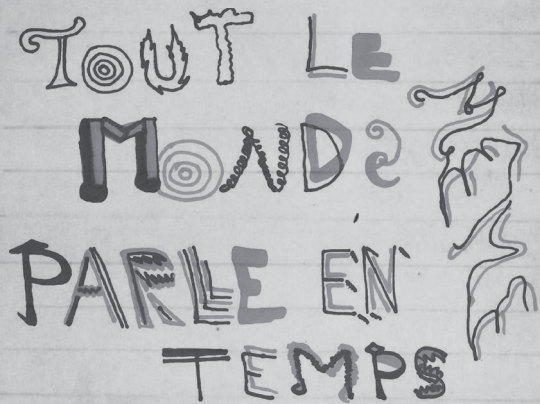 TOUT LE
MONDE
PARLE EN
TEMPS